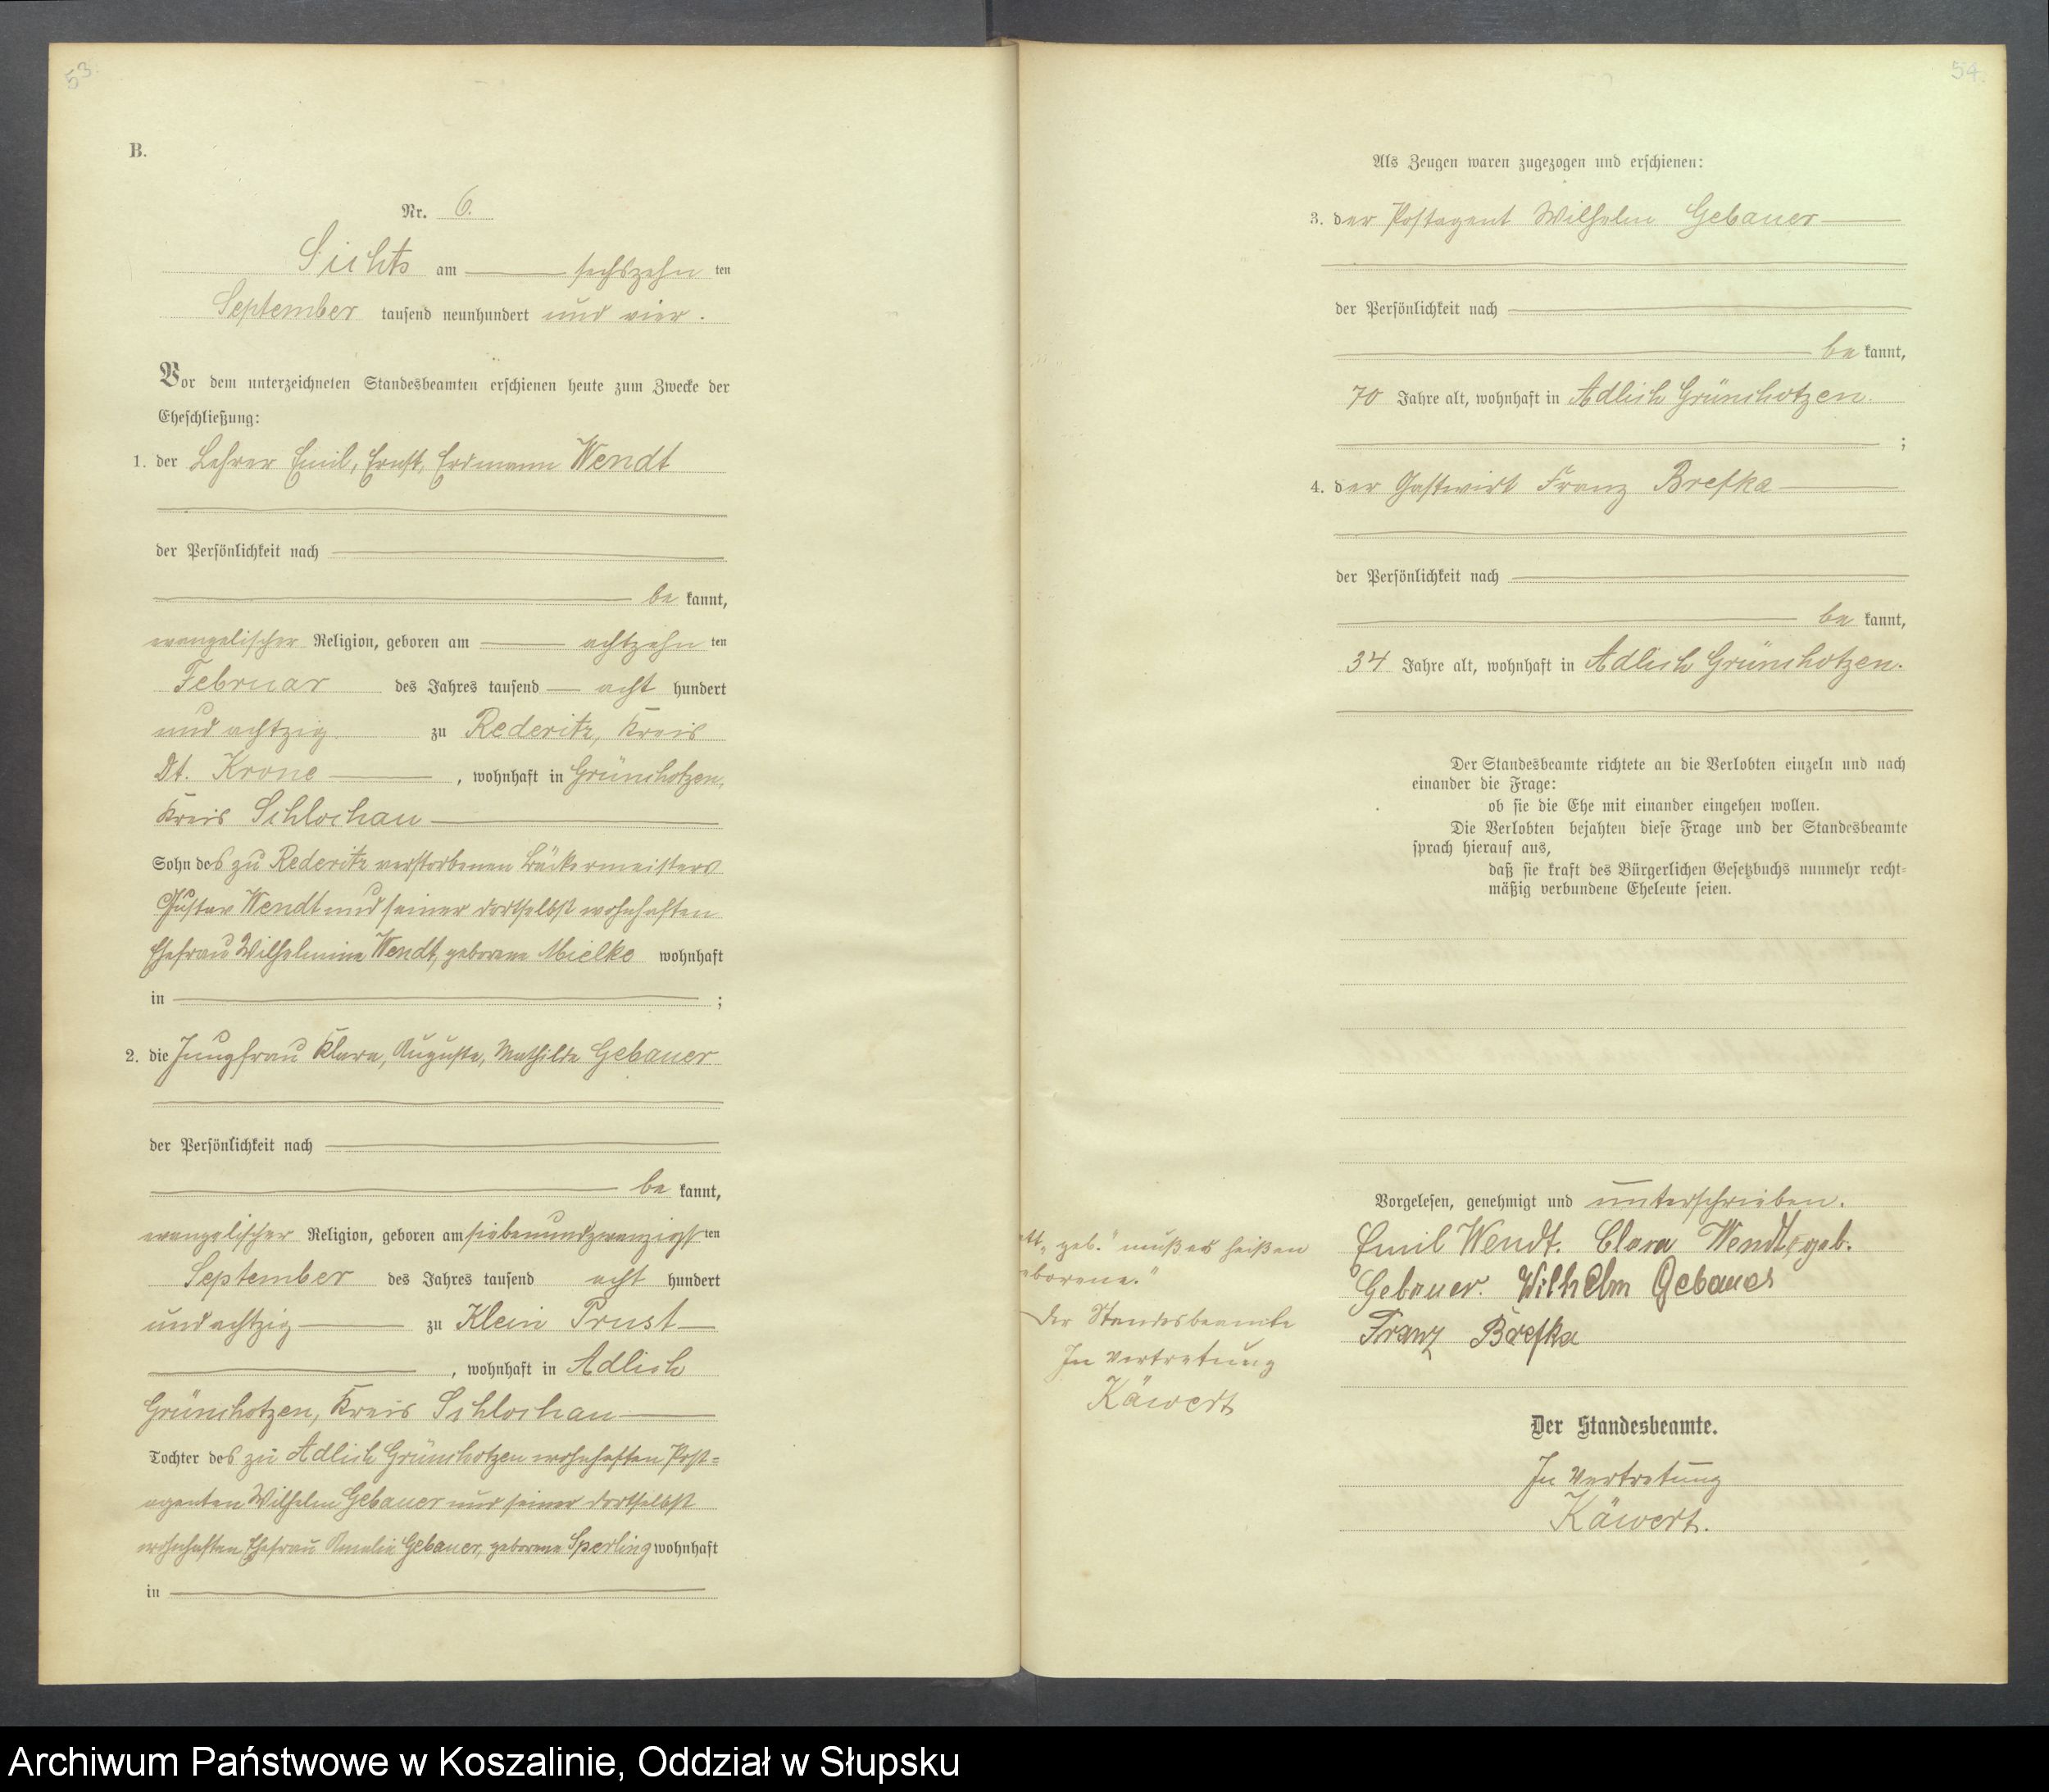 53.
B.
Nr. 6.
Sichts am sechszehn ten
September tausend neunhundert und vier.
Vor dem unterzeichneten Standesbeamten erschienen heute zum Zwecke der
Eheschließung:
1. der Lehrer Emil, Ernst, Erdmann Wendt
der Persönlichkeit nach
be kannt,
evangelischer Religion, geboren am achtzehn ten
Februar des Jahres tausend acht hundert
und achtzig zu Rederitz, Kreis
Dt. Krone, wohnhaft in Grünchotzen,
Kreis Schlochau
Sohn des zu Rederitz verstorbenen Bäckermeisters
Gustav Wendt und seiner dortselbst wohnhaften
Ehefrau Wilhelmine Wendt, geborene Mielke wohnhaft
in ;
2. die Jungfrau Klara, Auguste, Mathilde Gebauer
der Persönlichkeit nach
be kannt,
evangelischer Religion, geboren am siebenundzwanzigsten
September des Jahres tausend acht hundert
und achtzig zu Klein Prust
, wohnhaft in Adlich
Grünchotzen, Kreis Schlochau
Tochter des zu Adlich Grünchotzen wohnhaften Post=
agenten Wilhelm Gebauer und seiner dortselbst
wohnhaften Ehefrau Amalie Gebauer, geborene Sperling wohnhaft
in
54.
Als Zeugen waren zugezogen und erschienen:
3. der Postagent Wilhelm Gebauer
der Persönlichkeit nach
be kannt,
70 Jahre alt, wohnhaft in Adlich Grünchotzen
;
4. der Gastwirt Franz Brefka
der Persönlichkeit nach
be kannt,
34 Jahre alt, wohnhaft in Adlich Grünchotzen.
Der Standesbeamte richtete an die Verlobten einzeln und nach
einander die Frage:
ob sie die Ehe mit einander eingehen wollen.
Die Verlobten bejahten diese Frage und der Standesbeamte
sprach hierauf aus,
daß sie kraft des Bürgerlichen Gesetzbuchs nunmehr recht=
mäßig verbundene Eheleute seien.
Vorgelesen, genehmigt und unterschrieben.
Emil Wendt. Clara Wendt, geb.
Gebauer. Wilhelm Gebauer
Franz Brefka
Der Standesbeamte.
In Vertretung
Käwert.
"geb." muß es heißen
eborene."
Der Standesbeamte
In Vertretung
Käwert
Archiwum Państwowe w Koszalinie, Oddział w Słupsku